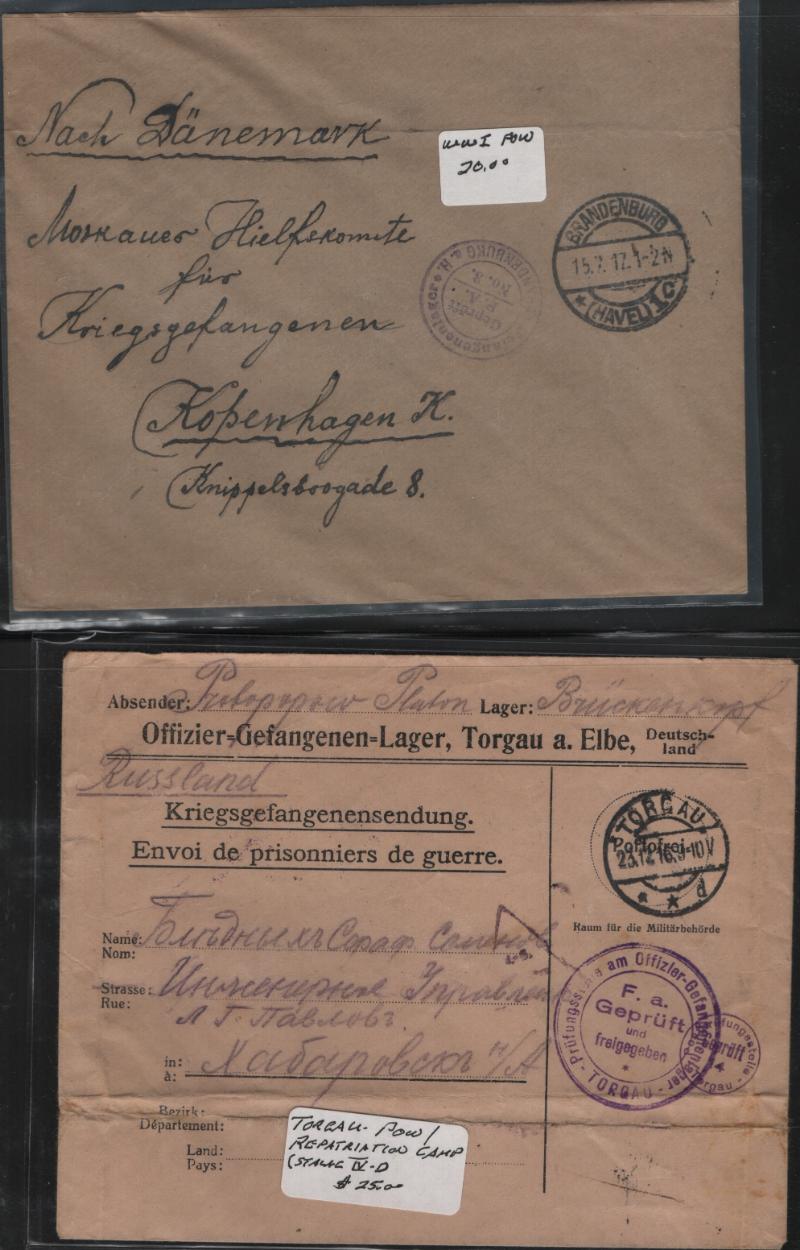 Nach Dänemark
WWI POW
20.00
Moskauer Hielfskomite
für
Kriegsgefangenen
Kopenhagen K.
Knippelsboogade 8.
Geprüft
F. A.
No. 8.
BRANDENBURG
15.7.17.1-2N
* (HAVEL) 1C
Absender: Platon Lager: Brückenkopf
Offizier=Gefangenen=Lager, Torgau a. Elbe, Deutsch-
land
Russland
Kriegsgefangenensendung.
Envoi de prisonniers de guerre.
TORGAU
Portofrei
23.12.16.9-10V
* * d
Raum für die Militärbehörde
Name:
Nom:
Strasse: Инженерное
Rue: Л Г Павловъ
in: Хабаровскъ н/А
à:
Prüfungsstelle am Offizier-Gefangenenlager
F. a.
Geprüft
und
freigegeben
*
- TORGAU -
Geprüft
4
Torgau
Bezirk:
Département:
Land:
Pays:
TORGAU- POW/
REPATRIATION CAMP
(STALAG IV-D
$ 25.00